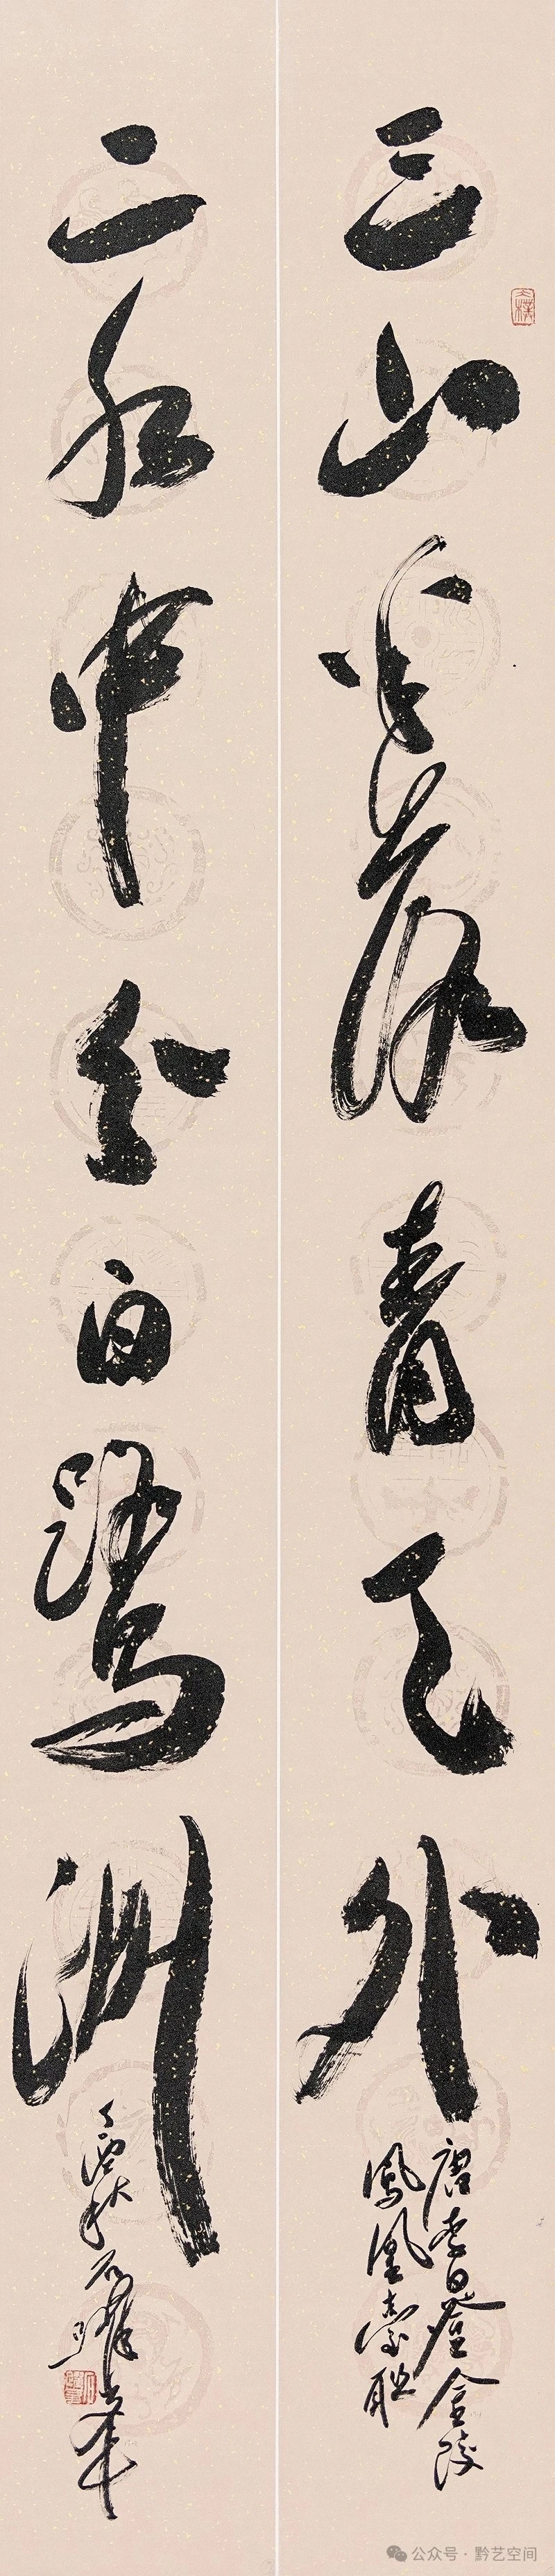 三山半落青天外
唐李白登金陵
鳳凰臺聯
二水中分白鹭洲
秋
公众号·黔艺空间